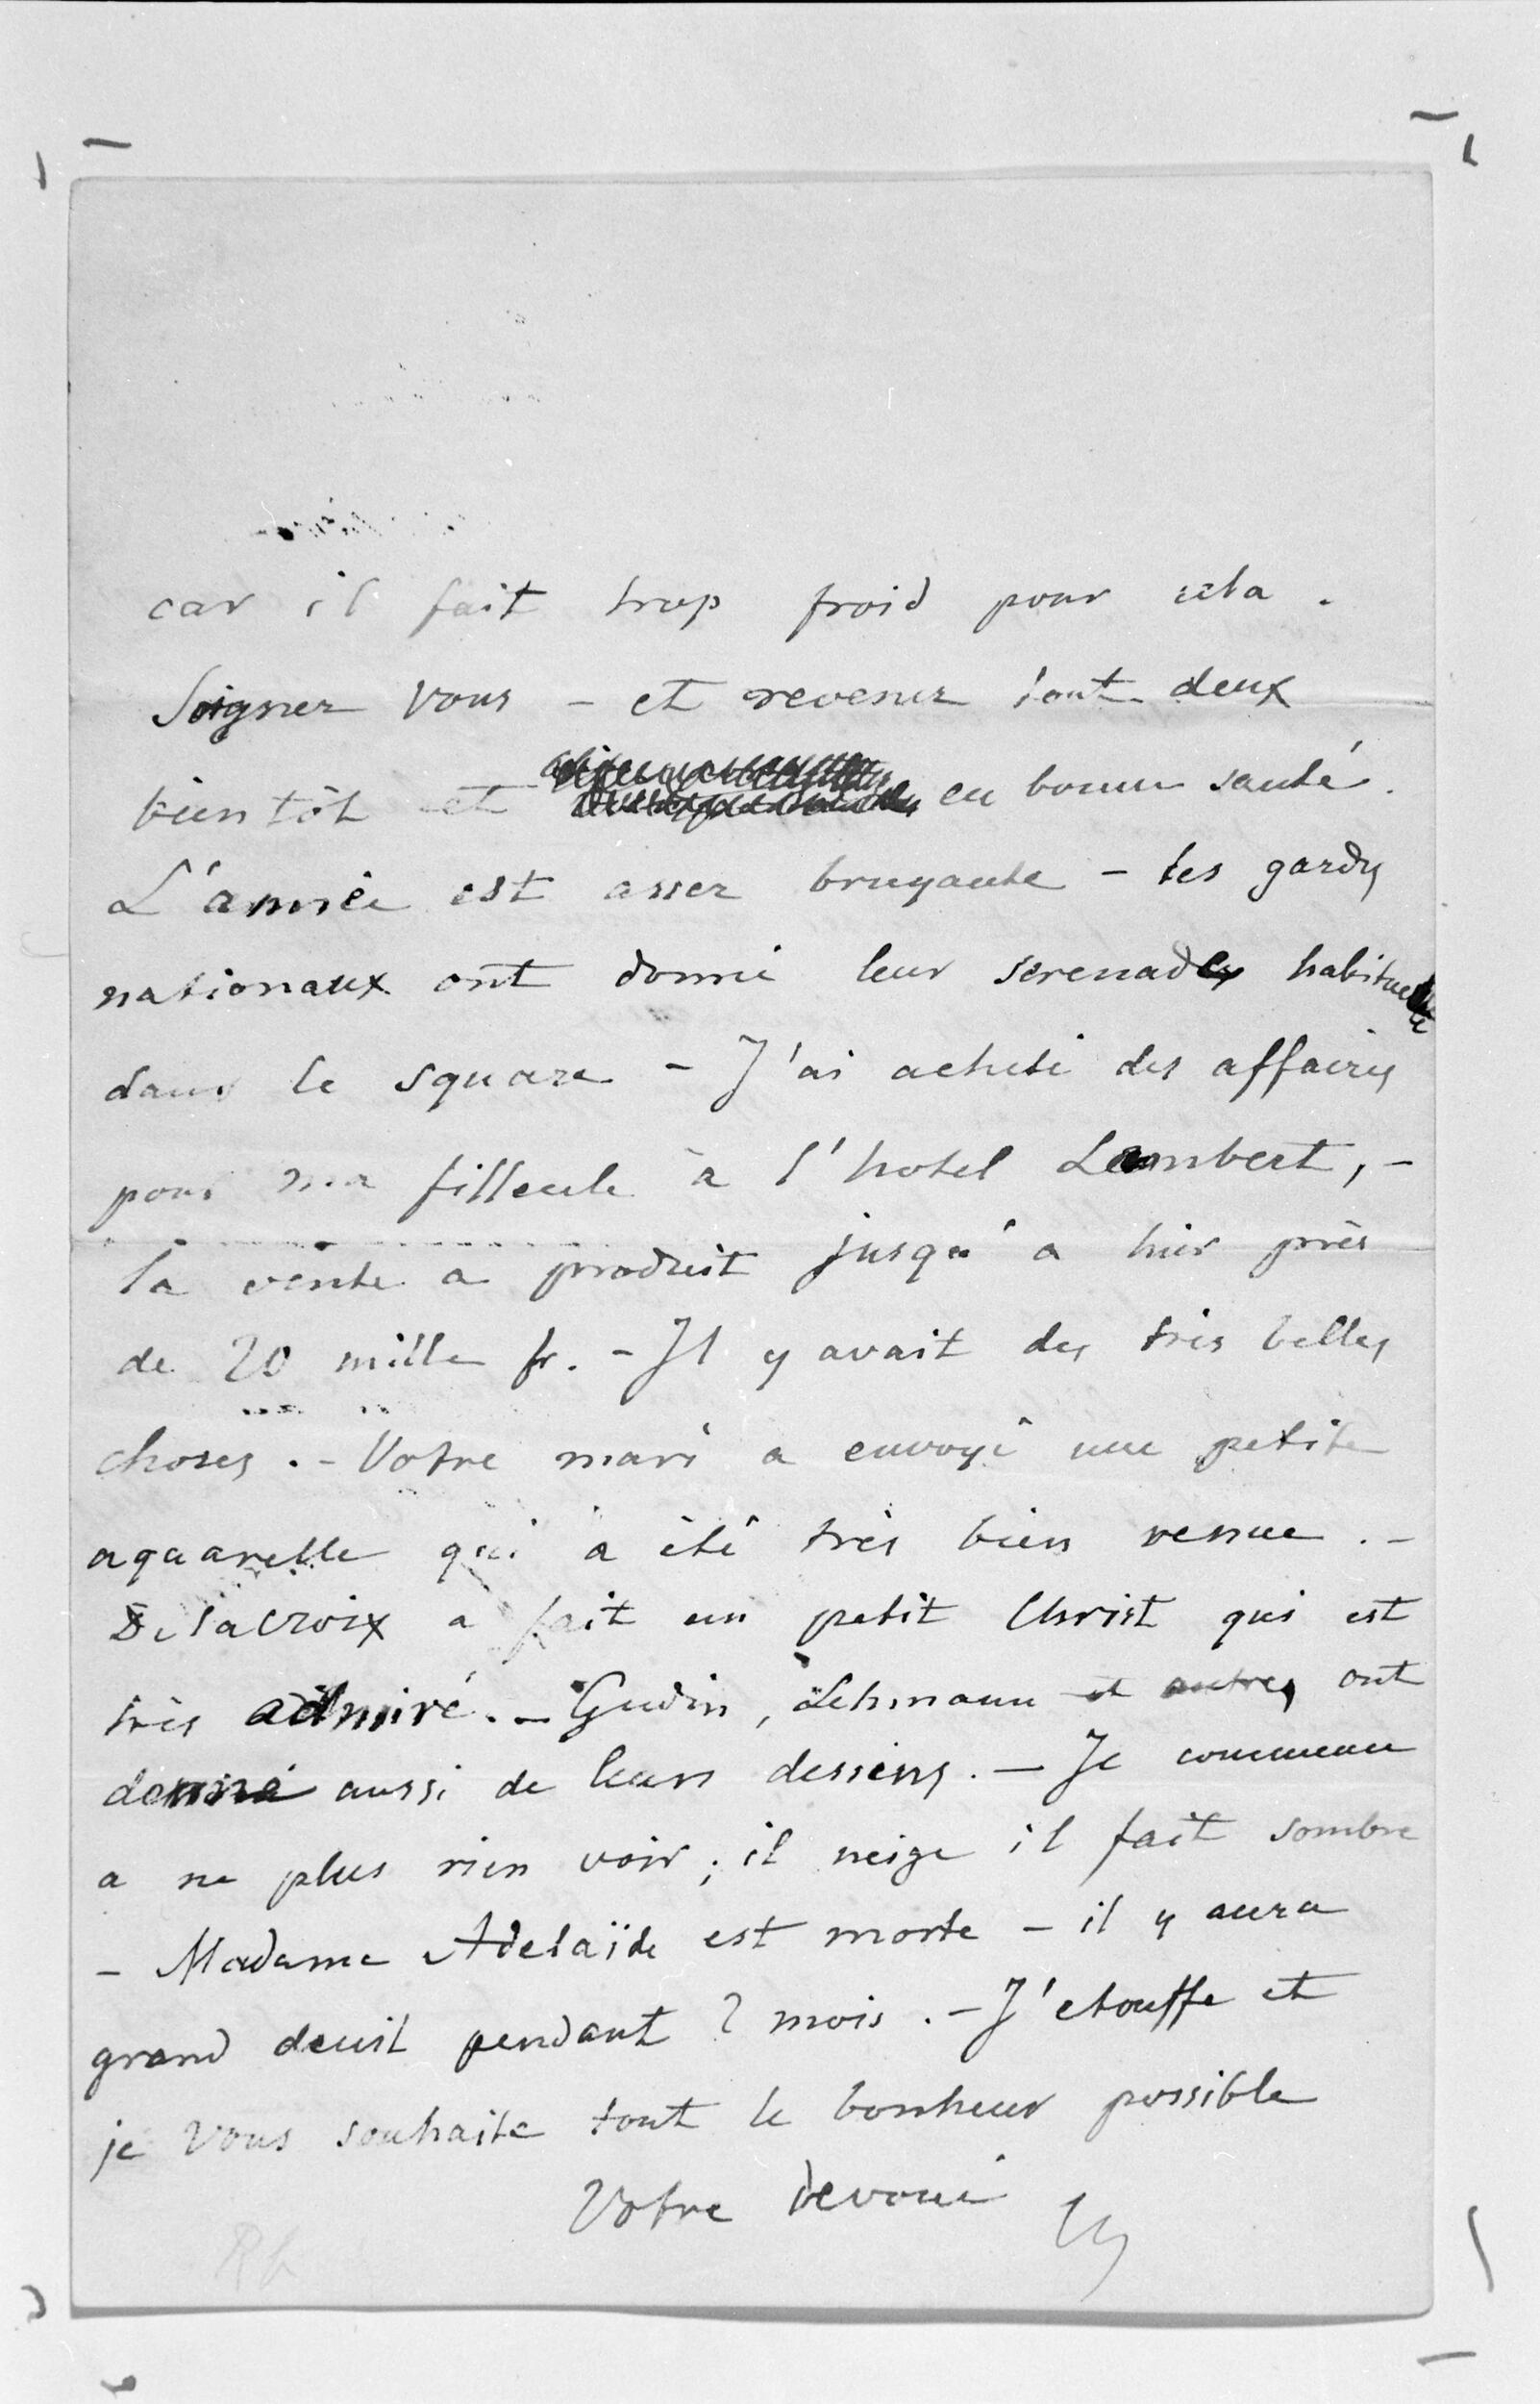 car il fait trop froid pour cela .
Soignez vous - et revenez tout deux
bientôt et en bonne santé.
L'année est assez bruyante - les gardes
nationaux ont donné leur serenade habituelle
dans le square - J'ai acheté des affaires
pour ma filleule à l'hotel Lambert, -
la vente a produit jusqu'a hier près
de 20 mille fr. - Il y avait des très belles
choses . - Votre mari a envoyé une petite
aquarelle qui a été très bien venue . -
Delacroix a fait un petit Christ qui est
très admiré. - Gudin, Lehmann et autres ont
donné aussi de leurs dessins. - Je commence
a ne plus rien voir ; il neige il fait sombre
- Madame Adelaïde est morte - il y aura
grand deuil pendant 2 mois . - J'etouffe et
je vous souhaite tout le bonheur possible
Votre devoué Ch